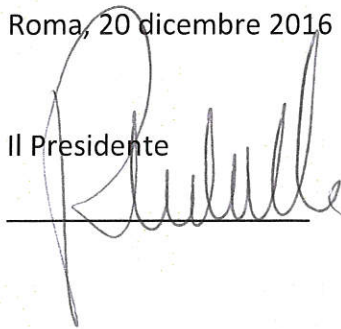 Roma, 20 dicembre 2016
Il Presidente